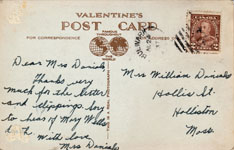 VALENTINE'S
POST CARD
FOR CORRESPONDENCE
FAMOUS
CANADA
Dear Mrs Daniels
Thanks very
much for the letter
and clippings. Sorry
to hear of Mary Wells
With love
Mrs Daniels
Mrs William Daniels
Hollis St.
Holliston
Mass